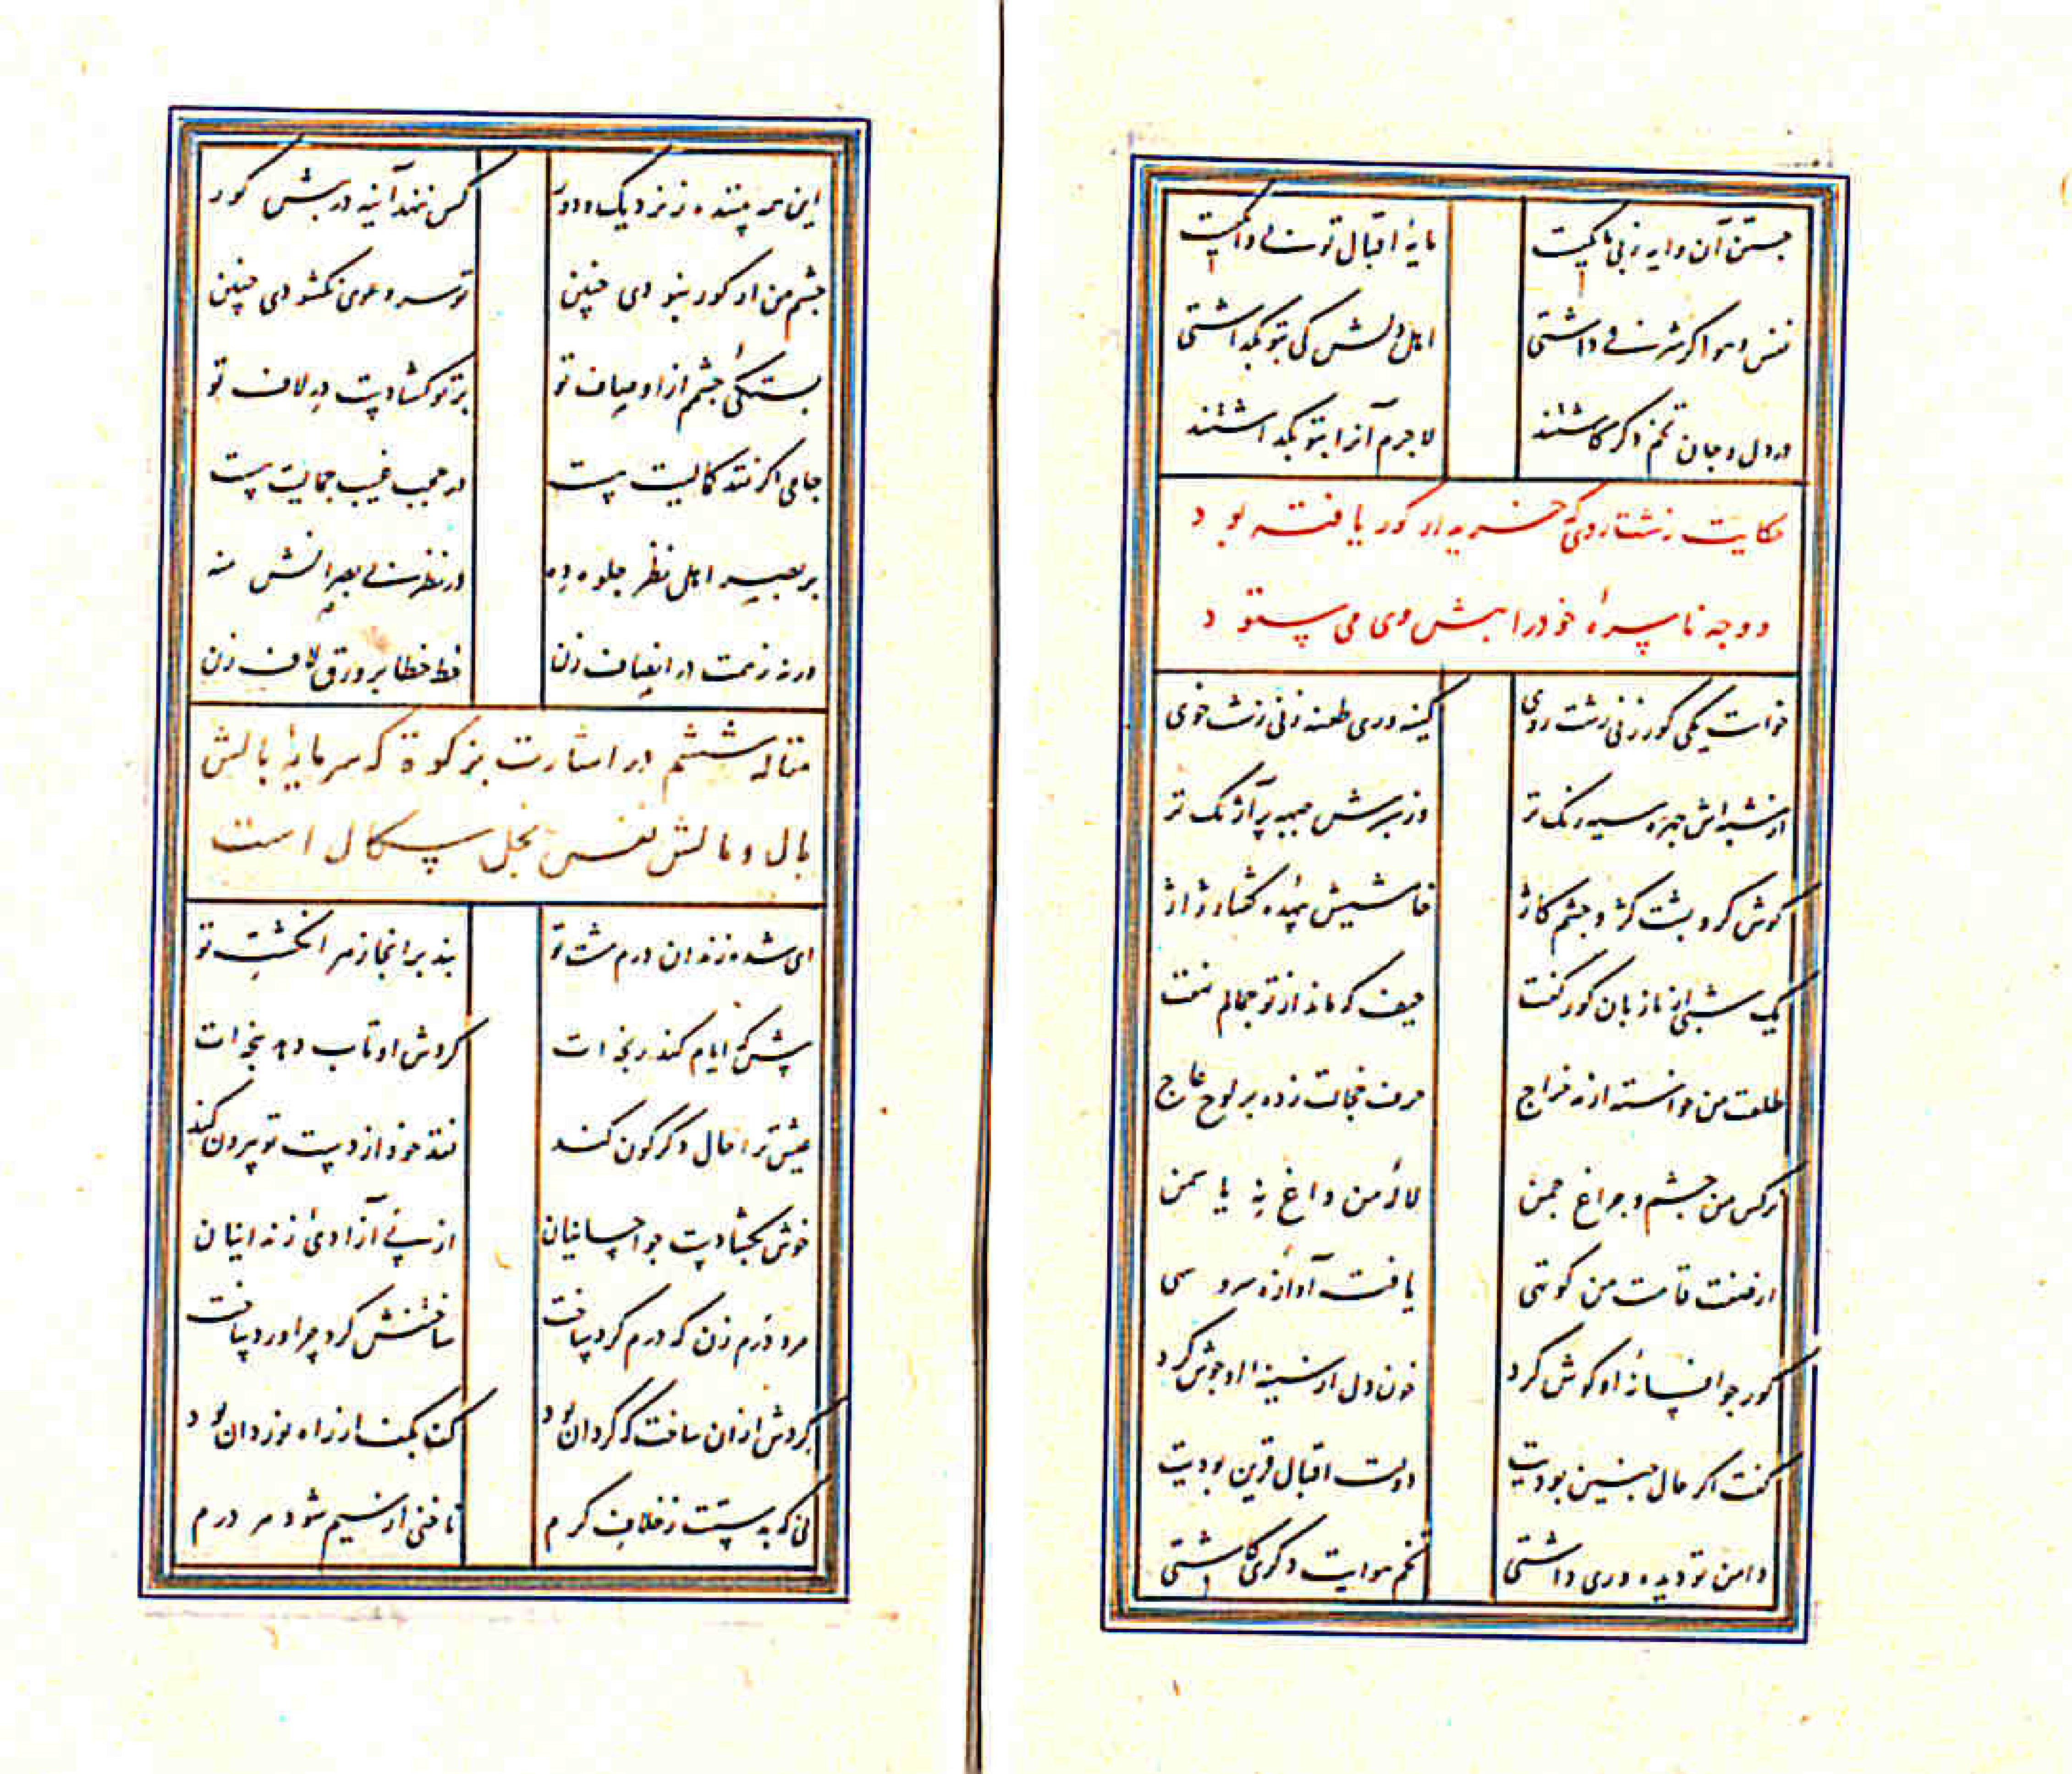 جستن آن دایه ز بی مایگیست مایهٔ اقبال تو بی دایگیست
نفس و هوا گر شرفی داشتی اهل دلش کی بتو بگذاشتی
در دل و جان تخم دگر کاشتند لاجرم آنرا بتو بگذاشتند
حکایت زشت روئی که خریدار کور یافته بود
و وجه ناسرهٔ خود را پیش وی می ستود
خواست یکی کور زنی زشت روی کینه وری طعنه زنی زشت خوی
از شبه اش چهره سیه رنگ تر وز سپرش جبهه پر آژنگ تر
گوش کر و پشت کژ و چشم کاژ خامشیش بیهده گفتار ژاژ
یک شبی از ناز بان کور گفت حیف که ماند از تو جمالم نهفت
طلعت من خواسته از مه خراج حرف خجالت زده بر لوح عاج
نرگس من چشم و چراغ چمن لالهٔ من داغ نه یاسمن
از صفت قامت من کوتهی یافت آوازه سرو سهی
کور چو افسانهٔ او گوش کرد خون دل از سینهٔ او جوش کرد
گفت اگر حال چنین بودیت دولت اقبال قرین بودیت
دامن تو دیده وری داشتی تخم هوایت دگری کاشتی
این همه بیننده ز نزدیک و دور کس ننهد آینه در پیش کور
چشم من ار کور نبودی چنین تو سر دعوی نگشودی چنین
بستگی چشم از اوصاف تو بر تو گشادست در لاف تو
جامی اگر نقد کمالیت هست در جیب غیب جمالیت هست
بر بصر اهل نظر جلوه ده در نظر بی بصرانش منه
ورنه رقمت در انصاف زن خط خطا بر ورق لاف زن
مقاله ششم در اشارت بزکوة که سرمایهٔ بالش
مال و مالش نفس بخل سگال است
ای شده زندان درم مشت تو بند بر آنجا ز هر انگشت تو
پیش که ایام کند رنجه ات گردش او تاب دهد پنجه ات
عیش ترا حال دگرگون کند نقد خود از دست تو بیرون کند
خوش بگشا دست چو احسانیان از پی آزادی زندانیان
مرد درم زن که درم گرد ساخت ساختنش گرد چرا در دیافت
گردش ازان ساخت که گردان بود کف بکف از راه نوردان بود
نی که بدستت ز خلاف کرم ناخنی از سیم شود هر درم